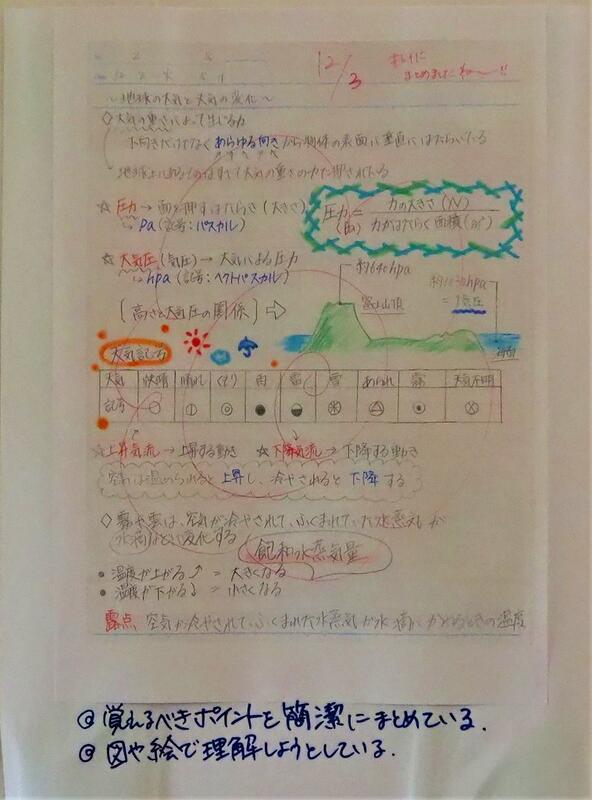 12/3
きれいに
まとめましたね～!!
～地球の大気と天気の変化～
◇大気の重さによって生じる力
下向きだけでなくあらゆる向きから物体の表面に垂直にはたらいている
地球上にあるものはすべて大気の重さの力で押されている
☆圧力→面を押すはたらき(大きさ)
↳Pa(記号:パスカル)
圧力(Pa)=力の大きさ(N)/力がはたらく面積(m²)
☆大気圧(気圧)→大気による圧力
↳hpa(記号:ヘクトパスカル)
約640hpa
[高さと大気圧の関係]⇨
富士山頂
=1気圧
海面
天気記号
天気 快晴 晴れ くもり 雨 雷 雪 あられ 霧 天気不明
記号
☆上昇気流→上昇する動き ☆下降気流→下降する動き
空気は温められると上昇し、冷やされると下降する
◇霧や雲は、空気が冷やされて、ふくまれていた水蒸気が
水滴などに変化する
飽和水蒸気量
●温度が上がる↑=大きくなる
●温度が下がる↓=小さくなる
露点 空気が冷やされて、ふくまれた水蒸気が水滴にかわるときの温度
◎覚えるべきポイントを簡潔にまとめている.
◎図や絵で理解しようとしている.